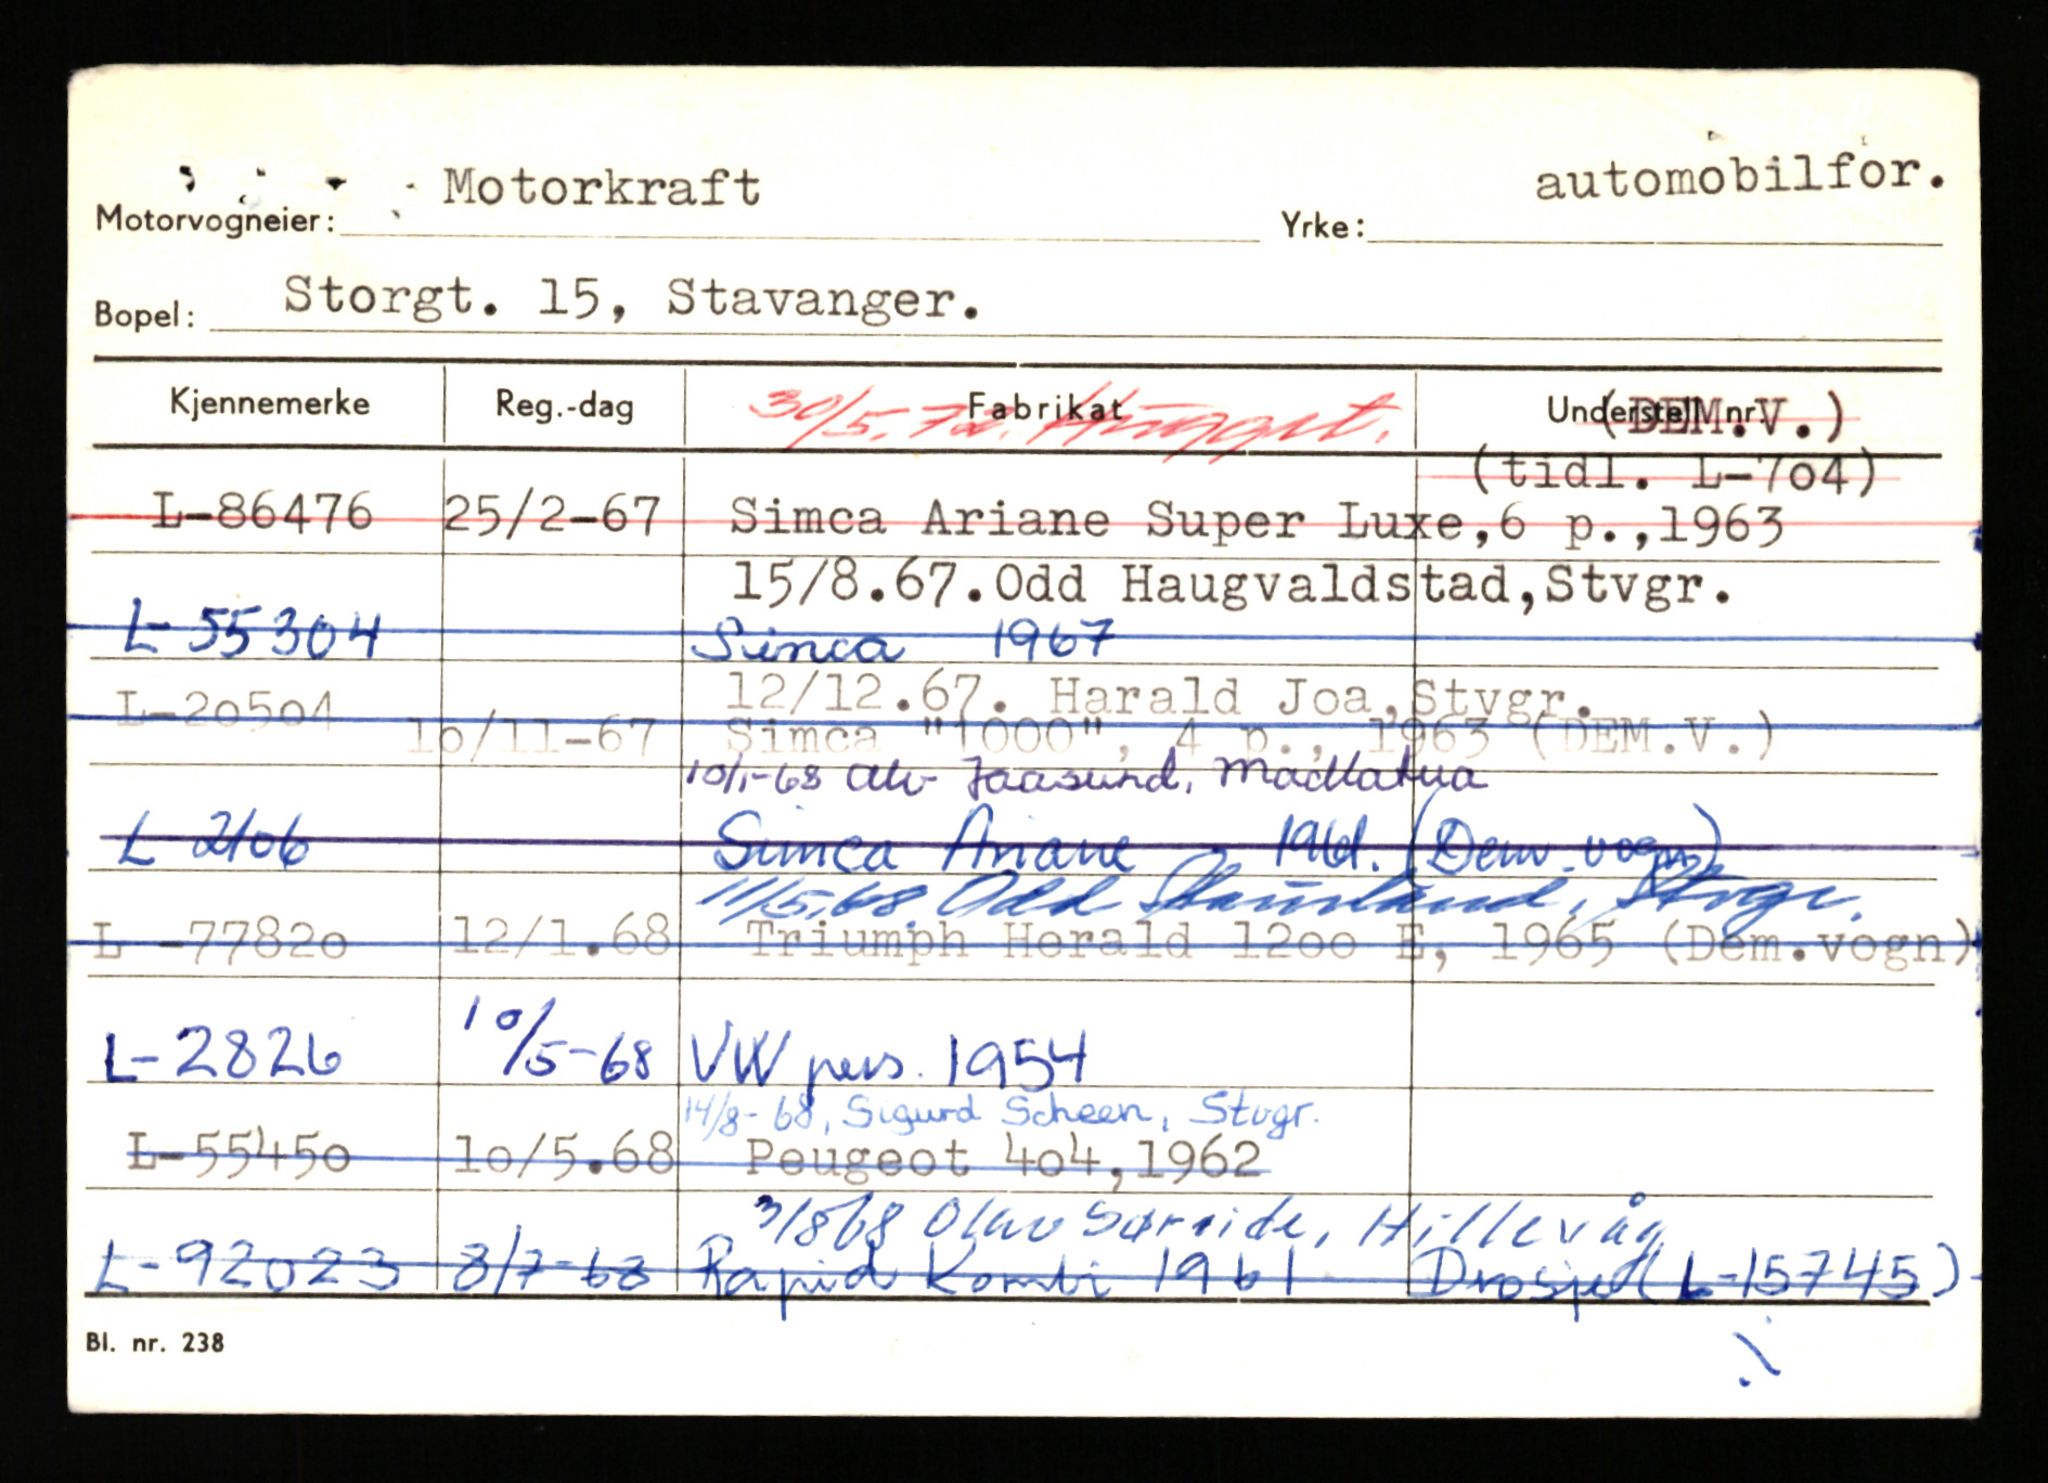 Motorvogneier: Motorkraft Yrke: automobilfor.
Bopel: Storgt. 15, Stavanger.
Kjennemerke Reg.-dag Fabrikat Understell nr. (DEM.V.)
30/5.72. Hugget.
(tidl. L-704)
L-86476 25/2-67 Simca Ariane Super Luxe,6 p.,1963
15/8.67.Odd Haugvaldstad,Stvgr.
L-55304 Simca 1967
12/12.67. Harald Joa,Stvgr.
L-20504 10/11-67 Simca "1000", 4 p., 1963 (DEM.V.)
10/1-68 Alv Jaasund, Madlatua
L 2106 Simca Ariane 1961. (Dem.vogn)
11/5.68. Odd Stavr, Stvgr.
L -77820 12/1.68 Triumph Herald 1200 E, 1965 (Dem.vogn)
L-2826 10/5-68 VW pers. 1954
14/8-68, Sigurd Scheen, Stvgr.
L-55450 10/5.68 Peugeot 404,1962
3/8 68 Olav Sørside, Hillevåg
L-92023 8/7-68 Rapid Kombi 1961 Drosje (L-15745)
Bl. nr. 238